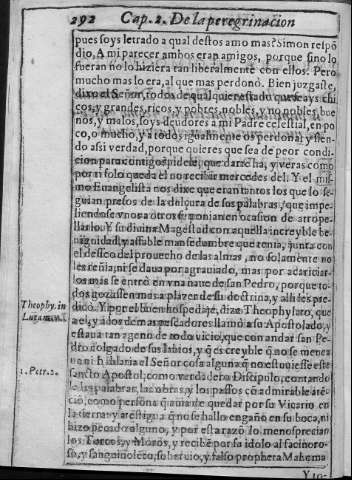 292 Cap. 2. De la peregrinacion
pues soys letrado a qual destos amo mas? Simon respō
dio, A mi parecer ambos eran amigos, porque sino lo
fueran no lo hiziera tan liberalmente con ellos. Pero
mucho mas lo era, al que mas perdonò. Bien juzgaste,
dixo el Señor, todos de qual quier estado que seays chi
cos, y grandes, ricos, y pobres, nobles, y no nobles, bue
nos, y malos, soys deudores a mi Padre celestial, en po
co, o mucho, y a todos igualmente os perdona, y sien-
do assi verdad, porque quieres que sea de peor condi
cion para contigo
por si solo queda el no recibir mercedes del. Y el mis
mo Euangelista nos dize que eran tantos los que lo se-
guian presos de la dulçura de sus palabras, que impe-
diendose vnos a otros se ponian en ocasion de atrope-
llarlo. Y su diuina Magestad con aquella increyble be
nignidad, y afable mansedumbre que tenia, junta con
el desseo del prouecho de las almas, no solamente no
les reñia, ni se daua por agrauiado, mas por acariciar-
los mas se entrò en vna naue de san Pedro, porque to-
dos gozassen mas a plazer de su doctrina, y alli les pre
dicò. Y por el buen hospedaje, dize Theophylato, que
a el, y a dos de mas pescadores llamò a su Apostolado, y
estaua tan ageno de todo vicio, que con andar san Pe-
dro colgado de sus labios, y q̃ es creyble q̃ no se menea
ua ni hablaria el Señor cosa alguna q̃ no estuuiesse este
sancto Apostol, como verdadero Discipulo, contando
le las palabras, las obras, y los passos cō admirable atē-
ciō, como persona q̃ auia de quedar por su Vicario en
la tierra: y atestigua q̃ no se hallo engaño en su boca, ni
hizo pecado alguno, y por esta razō lo menosprecian
los Turcos, y Moros, y recibē por su idolo al facinoro-
so, y sanguinolēto, soberuio, y falso propheta Mahoma
Theophy. in
1. Petr. 2.